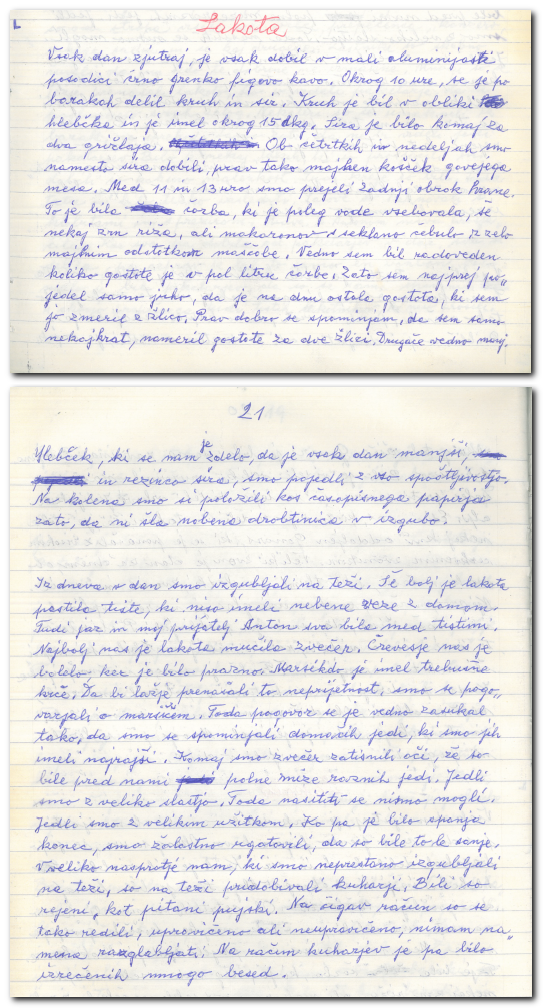 L
Lakota
Vsak dan zjutraj, je vsak dobil v mali aluminijasti
posodici črno grenko figovo kavo. Okrog 10 ure, se je po
barakah delil kruh in sir. Kruh je bil v obliki
hlebčka in je imel okrog 15 dkg. Sira je bilo komaj za
dva grižljaja. Ob četrtkih in nedeljah smo
namesto sira dobili, prav tako majhen košček govejega
mesa. Med 11 in 13 uro smo prejeli zadnji obrok hrane.
To je bila čorba, ki je poleg vode vsebovala, še
nekaj zrn riža, ali makaronov s seklano čebulo z zelo
majhnim odstotkom maščobe. Vedno sem bil radoveden
koliko gostote je v pol litru čorbe. Zato sem najprej po„
jedel samo juho, da je na dnu ostala gostota, ki sem
jo zmeril z žlico. Prav dobro se spominjam, da sem samo
nekajkrat, nameril gostote za dve žlici. Drugače vedno manj.
21
Hlebček, ki se nam je zdelo, da je vsak dan manjši
in rezinco sira, smo pojedli z vso spoštljivostjo.
Na kolena smo si položili kos časopisnega papirja
zato, da ni šla nobena drobtinica v izgubo.
Iz dneva v dan smo izgubljali na teži. Še bolj je lakota
pestila tiste, ki niso imeli nebene veze z domom.
Tudi jaz in moj prijatelj Anton sva bila med tistimi.
Najbolj nas je lakota mučila zvečer. Črevesje nas je
bolelo, ker je bilo prazno. Marsikdo je imel trebušne
krče. Da bi lažje prenašali to neprijetnost, smo se pogo„
varjali o marsičem. Toda pogovor se je vedno zasukal
tako, da smo se spominjali domačih jedi, ki smo jih
imeli najrajši. Komaj smo zvečer zatisnili oči, že so
bile pred nami polne mize raznih jedi. Jedli
smo z veliko slastjo. Toda nasititi se nismo mogli.
Jedli smo z velikim užitkom. Ko pa je bilo spanja
konec, smo žalostno ugotovili, da so bile to le sanje.
V veliko nasprotje nam, ki smo neprestano izgubljali
na teži, so na teži pridobivali kuharji. Bili so
rejeni, kot pitani pujski. Na čigav račun so se
tako redili, upravičeno ali neupravičeno, nimam na„
mena razglabljati. Na račun kuharjev je pa bilo
izrečenih mnogo besed.